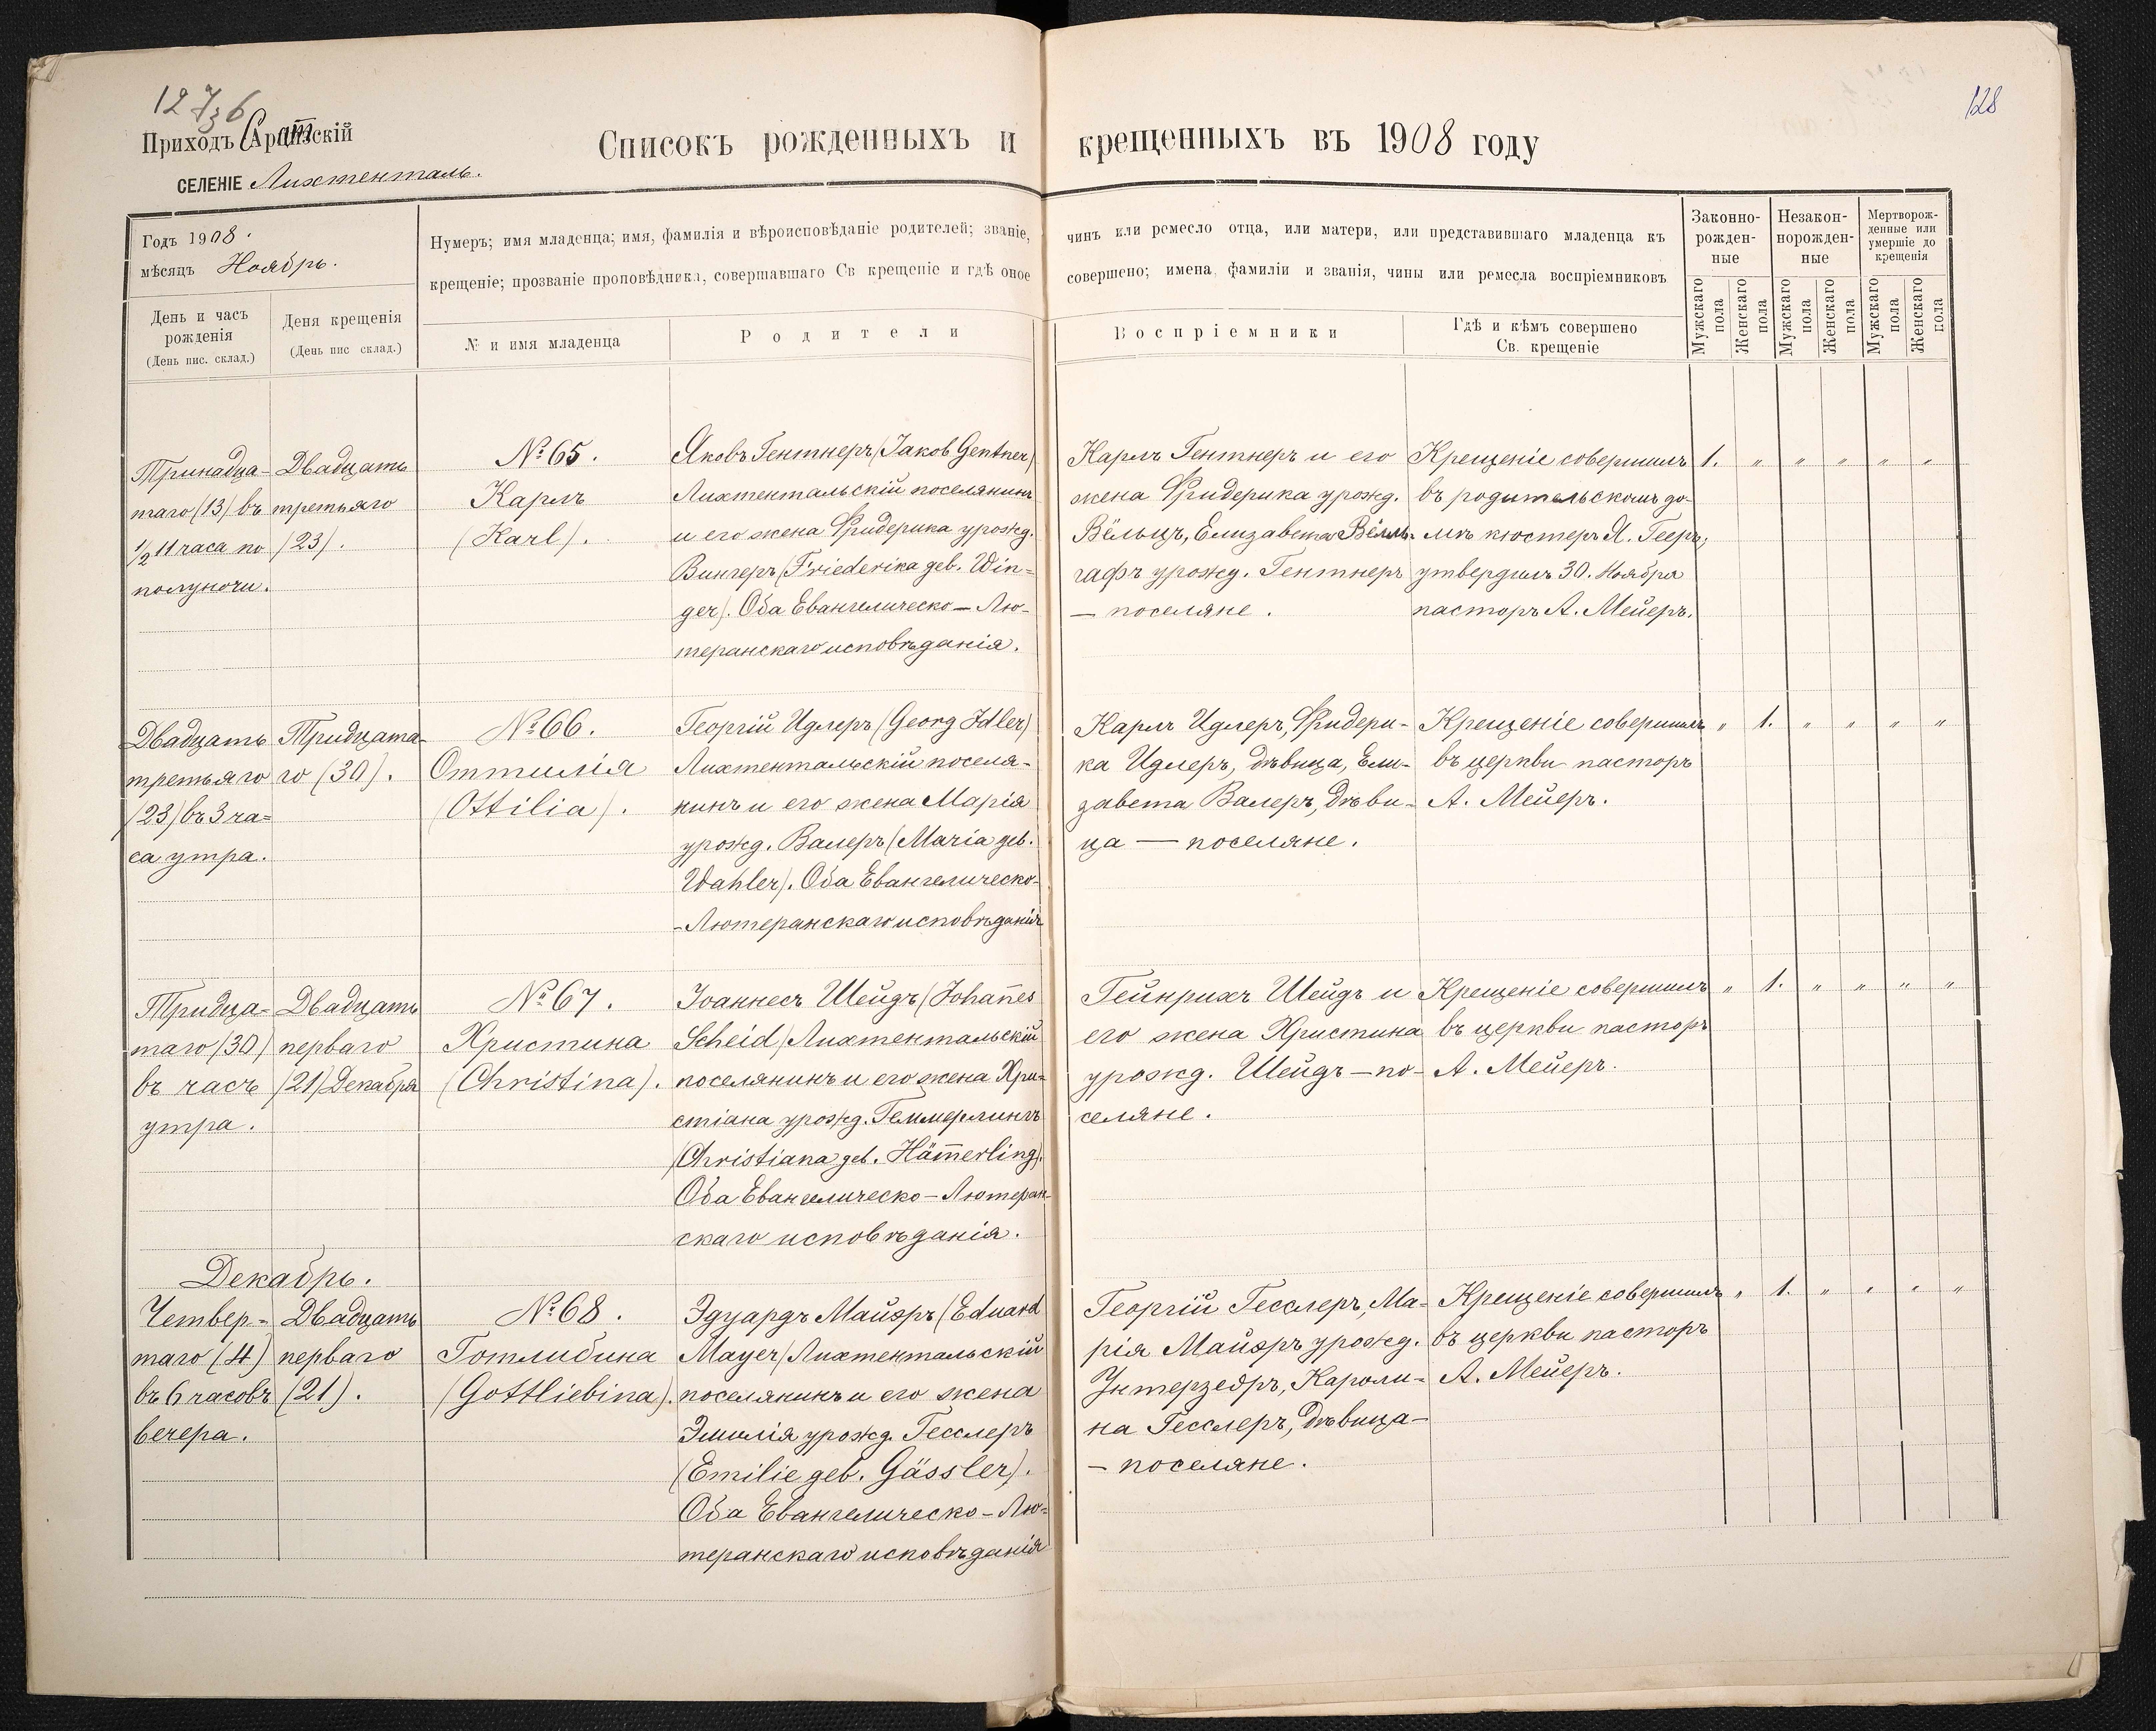 1236
128
Приходъ Сратскій
СЕЛЕНІЕ Лихтенталь.
Списокъ рожденныхъ и крещенныхъ въ 1908 году
Годъ 1908.
мѣсяцъ Ноябрь.
Нумеръ; имя младенца; имя, фамилія и вѣроисповѣданіе родителей; званіе, чинъ или ремесло отца, или матери, или представившаго младенца къ
крещеніе; прозваніе проповѣдника, совершавшаго Св крещеніе и гдѣ оное совершено; имена, фамиліи и званія, чины или ремесла воспріемниковъ
Законно-
рожден-
ные
Незакон-
норожден-
ные
Мертворож-
денные или
умершіе до
крещенія
День и часъ
рожденія
(День пис. склад.)
Деня крещенія
(День пис склад.)
№ и имя младенца
Родители
Воспріемники
Гдѣ и кѣмъ совершено
Св. крещеніе
Мужскаго
пола
Женскаго
пола
Мужскаго
пола
Женскаго
пола
Мужскаго
пола
Женскаго
пола
Тринадца-
таго (13) въ
½ 11 часа по
полуночи.
Двадцать
третьяго
(23).
№ 65.
Карлъ
(Karl).
Яковъ Гентнеръ (Jakob Gentner)
Лихтентальскій поселянинъ
и его жена Фридерика урожд.
Вингеръ (Friederika geb. Win-
ger). Оба Евангелическо-Лю-
теранскаго исповѣданія.
Карлъ Гентнеръ и его
жена Фридерика урожд.
Вёльцъ, Елизавета Вёлль-
гафъ урожд. Гентнеръ
— поселяне.
Крещеніе совершилъ
въ родительскомъ до-
мѣ кюстеръ Я. Гееръ;
утвердилъ 30. Ноября
пасторъ А. Мейеръ.
1. " " " " "
Двадцать
третьяго
(23) въ 3 ча-
са утра.
Тридцата-
го (30).
№ 66.
Оттилія
(Ottilia).
Георгій Идлеръ (Georg Idler)
Лихтентальскій поселя-
нинъ и его жена Марія
урожд. Валеръ (Maria geb.
Wahler). Оба Евангелическо-
-Лютеранскаго исповѣданія
Карлъ Идлеръ, Фридери-
ка Идлеръ, дѣвица, Ели-
завета Валеръ, дѣви-
ца — поселяне.
Крещеніе совершилъ
въ церкви пасторъ
А. Мейеръ.
" 1. " " " "
Тридца-
таго (30)
въ часъ
утра.
Двадцать
перваго
(21) Декабря
№ 67.
Христина
(Christina).
Іоаннесъ Шейдъ (Johan̄es
Scheid) Лихтентальскій
поселянинъ и его жена Хри-
стіана урожд. Геммерлингъ
(Christiana geb. Häm̄erling).
Оба Евангелическо-Лютеран-
скаго исповѣданія.
Гейнрихъ Шейдъ и
его жена Христина
урожд. Шейдъ — по-
селяне.
Крещеніе совершилъ
въ церкви пасторъ
А. Мейеръ.
" 1. " " " "
Декабрь.
Четвер-
таго (4)
въ 6 часовъ
вечера.
Двадцать
перваго
(21).
№ 68.
Готлибина
(Gottliebina).
Эдуардъ Майэръ (Eduard
Mayer) Лихтентальскій
поселянинъ и его жена
Эмилія урожд. Гесслеръ
(Emilie geb. Gässler).
Оба Евангелическо-Лю-
теранскаго исповѣданія
Георгій Гесслеръ, Ма-
рія Майэръ урожд.
Унтерзеэръ, Кароли-
на Гесслеръ, дѣвица —
— поселяне.
Крещеніе совершилъ
въ церкви пасторъ
А. Мейеръ.
" 1. " " " "